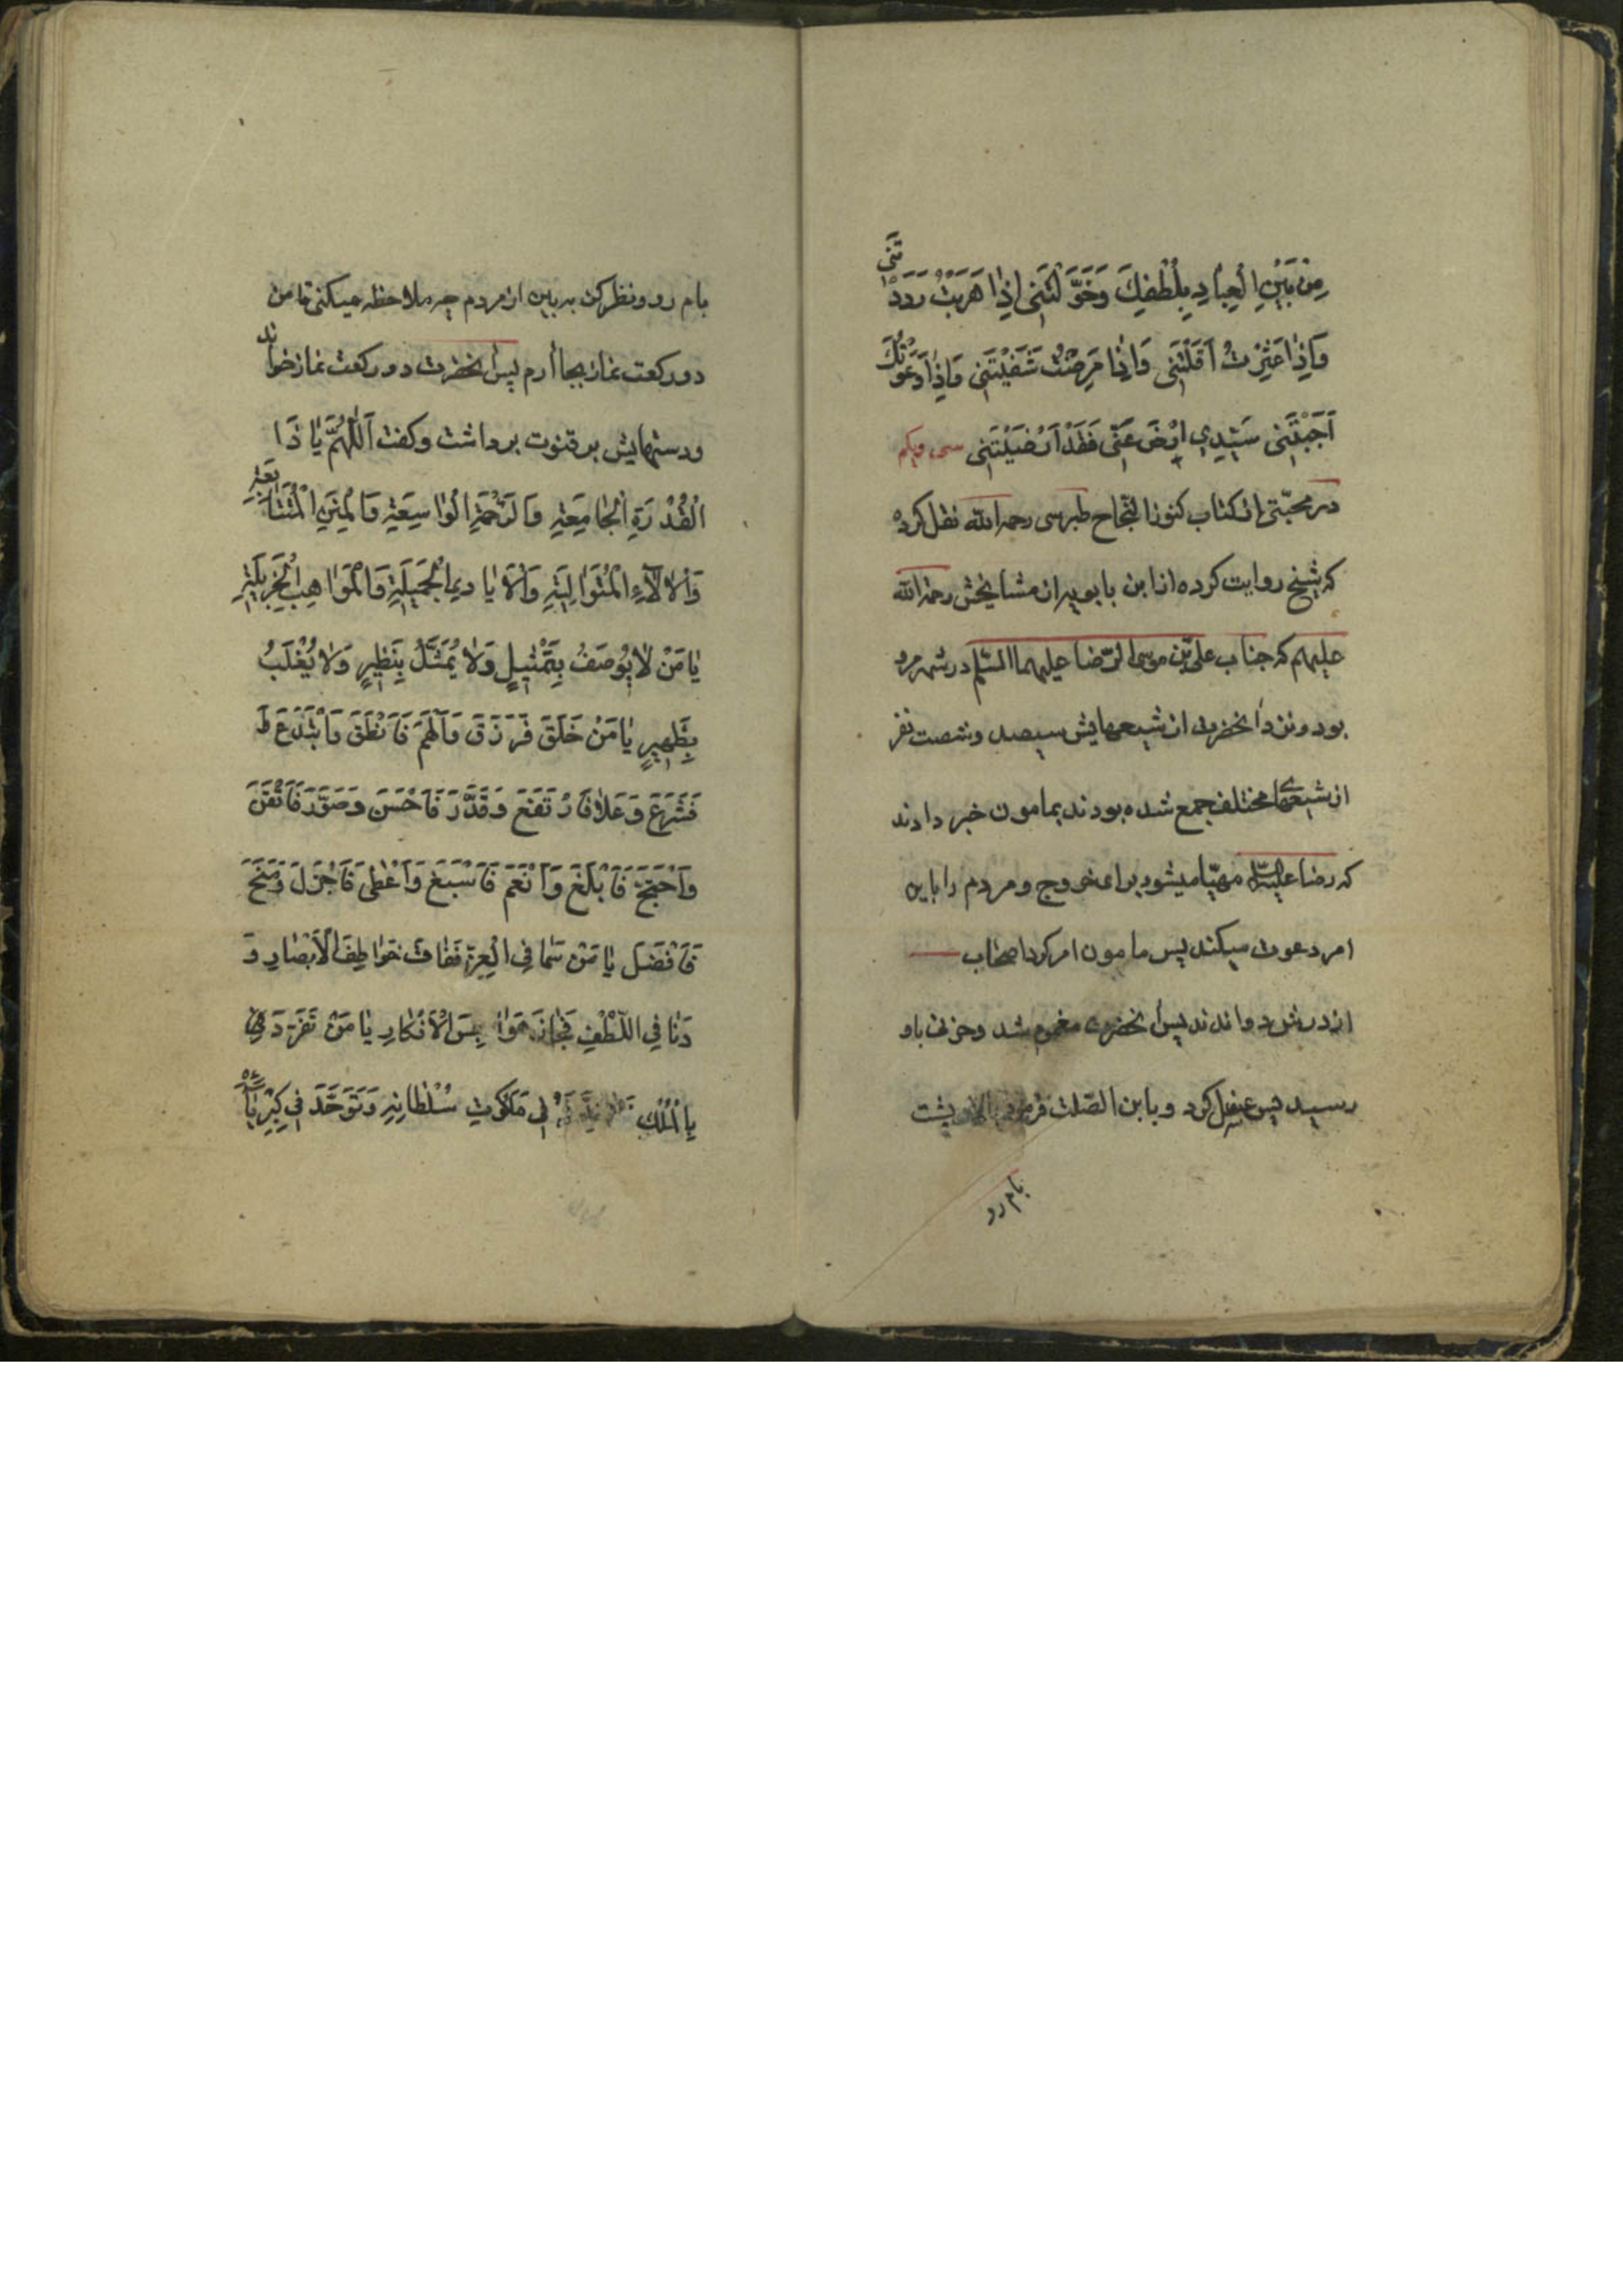 مِنْ بَيْنِ الْعِبادِ بِلُطْفِكَ وَخَوَّلْتَنى اِذا هَرَبْتُ رَدَدْتَنى
وَاِذا عَثَرْتُ اَقَلْتَنى وَاِذا مَرِضْتُ شَفَيْتَنى وَاِذا دَعَوْتُكَ
اَجَبْتَنى سَيِّدِي اِرْضَ عَنّى فَقَدْ اَرْضَيْتَنى سى ويكم
در كتاب كنوز النجاح طبرسى رحمه الله نقل كرده
كه شيخ روايت كرده از ابن بابويه از مشايخش رحمة الله
عليهم كه جناب على بن موسى الرّضا عليهما السّلم در شهر مرو
بود ونزد آنحضرت از شيعهايش سيصد وشصت نفر
از شيعهاى مختلف جمع شده بودند بمامون خبر دادند
كه رضا عليه السّلم مهيّا ميشود براى خروج و مردم را باين
امر دعوت ميكند پس مامون امر كرد اصحاب
از درش دواندند پس آنحضرت مغموم شد وحزن باو
رسيد پس غسل كرد و بابن الصّلت فرمود پشت
بام رو
بام رو ونظر كن به بين از مردم چه ملاحظه ميكنى تا من
دو ركعت نماز بجا آرم پس آنحضرت دو ركعت نماز خواند
ودستهايش بر قنوت برداشت وكفت اَللّهُمَّ يا ذَا
الْقُدْرَةِ الْجامِعَةِ وَالرَّحْمَةِ الْواسِعَةِ وَالْمِنَنِ الْمُتَتابِعَةِ
وَالْالآءِ الْمُتَوالِيَةِ وَالْاَيادِي الْجَميلَةِ وَالْمَواهِبِ الْجَزيلَةِ
يا مَنْ لا يُوصَفُ بِتَمْثيلٍ وَلا يُمَثَّلُ بِنَظيرٍ وَلا يُغْلَبُ
بِظَهيرٍ يا مَنْ خَلَقَ فَرَزَقَ وَاَلْهَمَ فَاَنْطَقَ وَابْتَدَعَ
فَشَرَعَ وَعَلا فَارْتَفَعَ وَقَدَّرَ فَاَحْسَنَ وَصَوَّرَ فَاَتْقَنَ
وَاحْتَجَّ فَاَبْلَغَ وَاَنْعَمَ فَاَسْبَغَ وَاَعْطى فَاَجْزَلَ وَمَنَحَ
فَاَفْضَلَ يا مَنْ سَما فِي الْعِزِّ فَفاتَ خَواطِفَ الْاَبْصارِ وَ
دَنا فِي اللُّطْفِ فَجازَ هَواجِسَ الْاَفْكارِ يا مَنْ تَفَرَّدَ
بِالْمُلْكِ فِي مَلَكُوتِ سُلْطانِهِ وَتَوَحَّدَ فِي كِبْرِيائِهِ